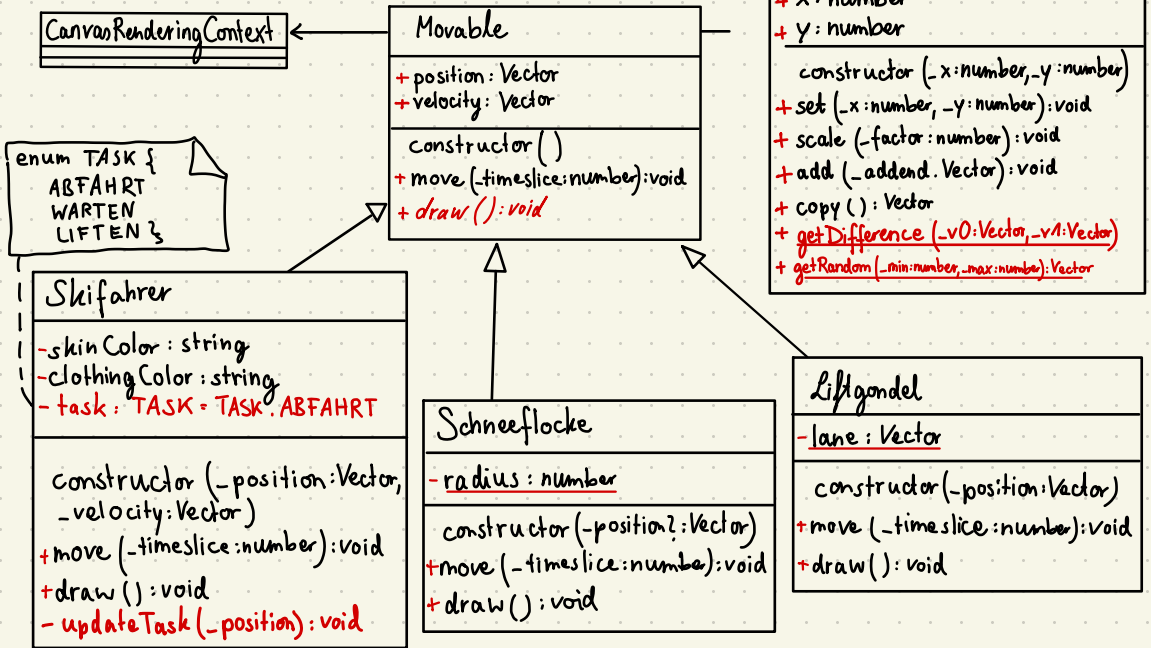 CanvasRenderingContext
Movable
+ position: Vector
+ velocity: Vector
constructor()
+ move(_timeslice:number):void
+ draw(): void
+ x: number
+ y: number
constructor (_x:number,_y:number)
+ set (_x:number, _y:number):void
+ scale (_factor:number):void
+ add (_addend.Vector):void
+ copy(): Vector
+ getDifference (_v0:Vector,_v1:Vector)
+ getRandom(_min:number,_max:number):Vector
enum TASK {
ABFAHRT
WARTEN
LIFTEN }
Skifahrer
- skinColor: string
- clothingColor: string
- task: TASK = TASK.ABFAHRT
constructor (_position:Vector,
_velocity:Vector)
+ move (_timeslice:number):void
+ draw (): void
- updateTask(_position): void
Schneeflocke
- radius: number
constructor(_position?:Vector)
+ move (_timeslice:number):void
+ draw(): void
Liftgondel
- lane: Vector
constructor(_position:Vector)
+ move (_timeslice:number):void
+ draw(): void